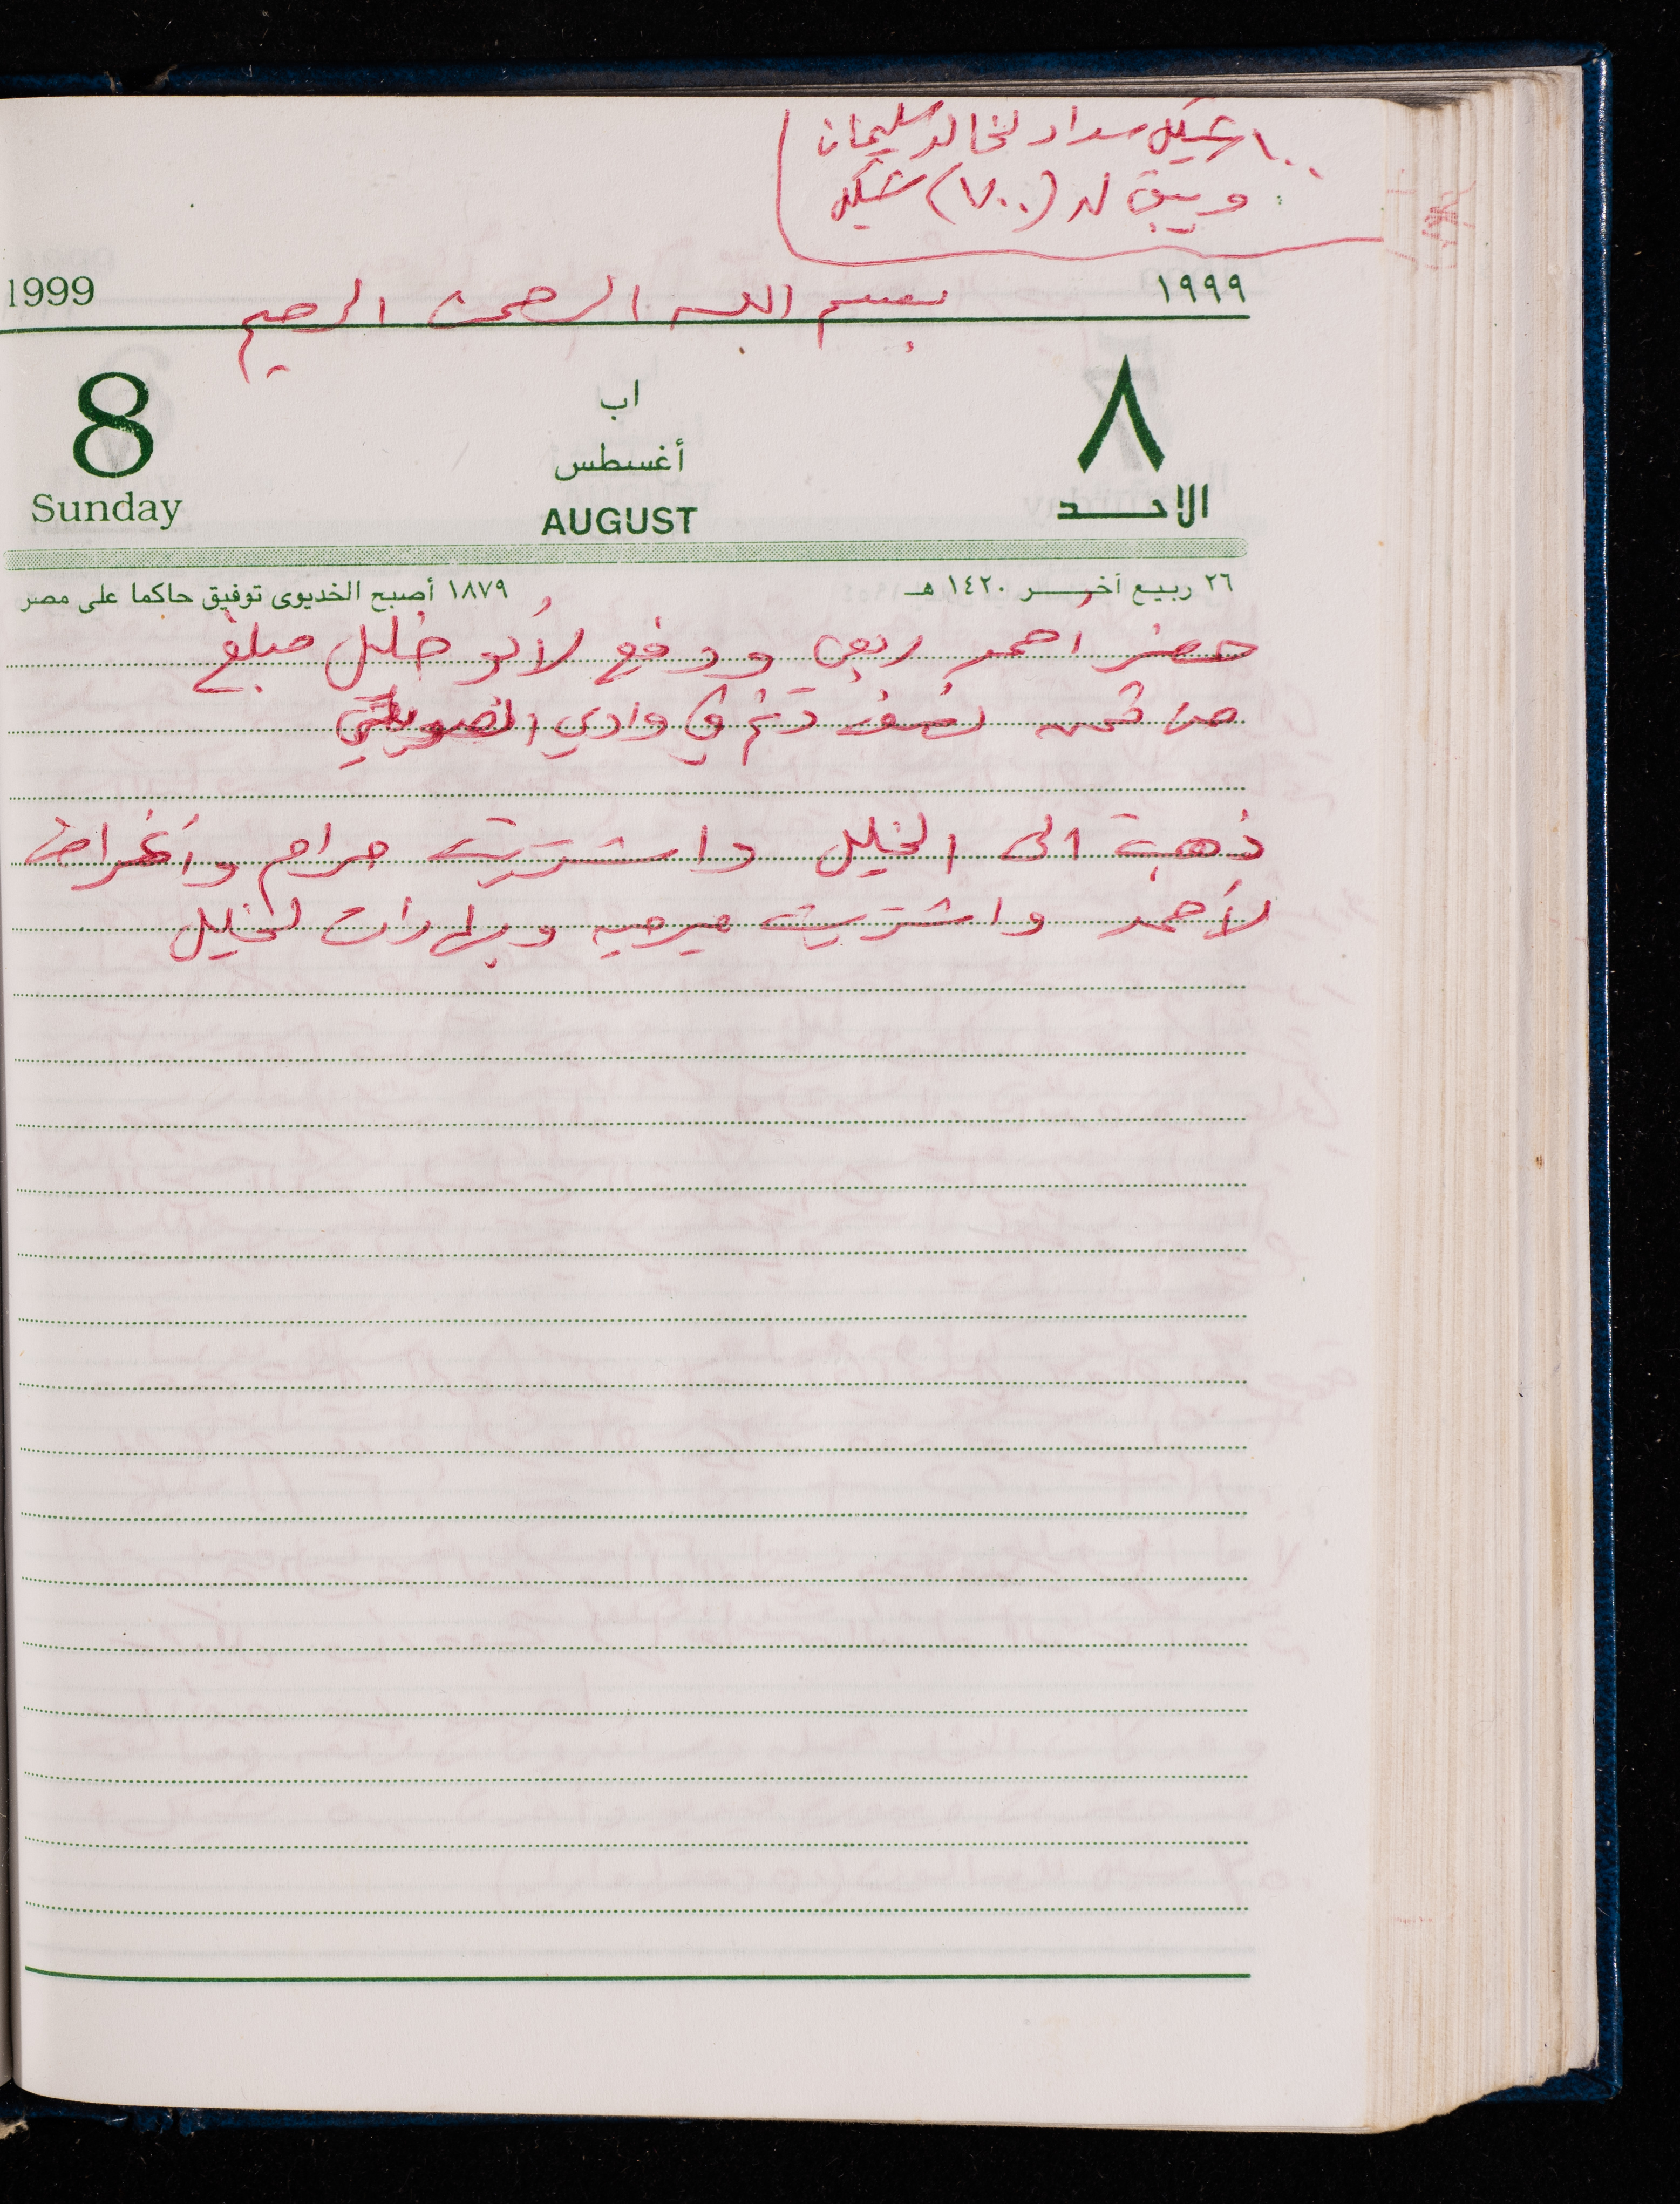 ١٠٠ شيكل سداد لخالد سليمان
ويبقى له (٧٠٠) شيكل
1999 ١٩٩٩
بسم الله الرحمن الرحيم
8 اب ٨
أغسطس
Sunday AUGUST الاحد
٢٦ ربيع آخر ١٤٢٠ هـ ١٨٧٩ أصبح الخديوى توفيق حاكما على مصر
حضر احمد ربعي ودفع لأبو خليل مبلغ
من ثمن نصف دنم في وادي
ذهبت الى الخليل واشتريت حرام وأغراض
لأحمد واشتريت ميرميه وبهارات لخليل